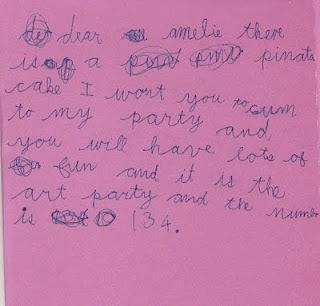 dear amelie there
is a pinata
cake I wont you to cum
to my party and
you will have lots of
fun and it is the
art party and the numbe
is 134.